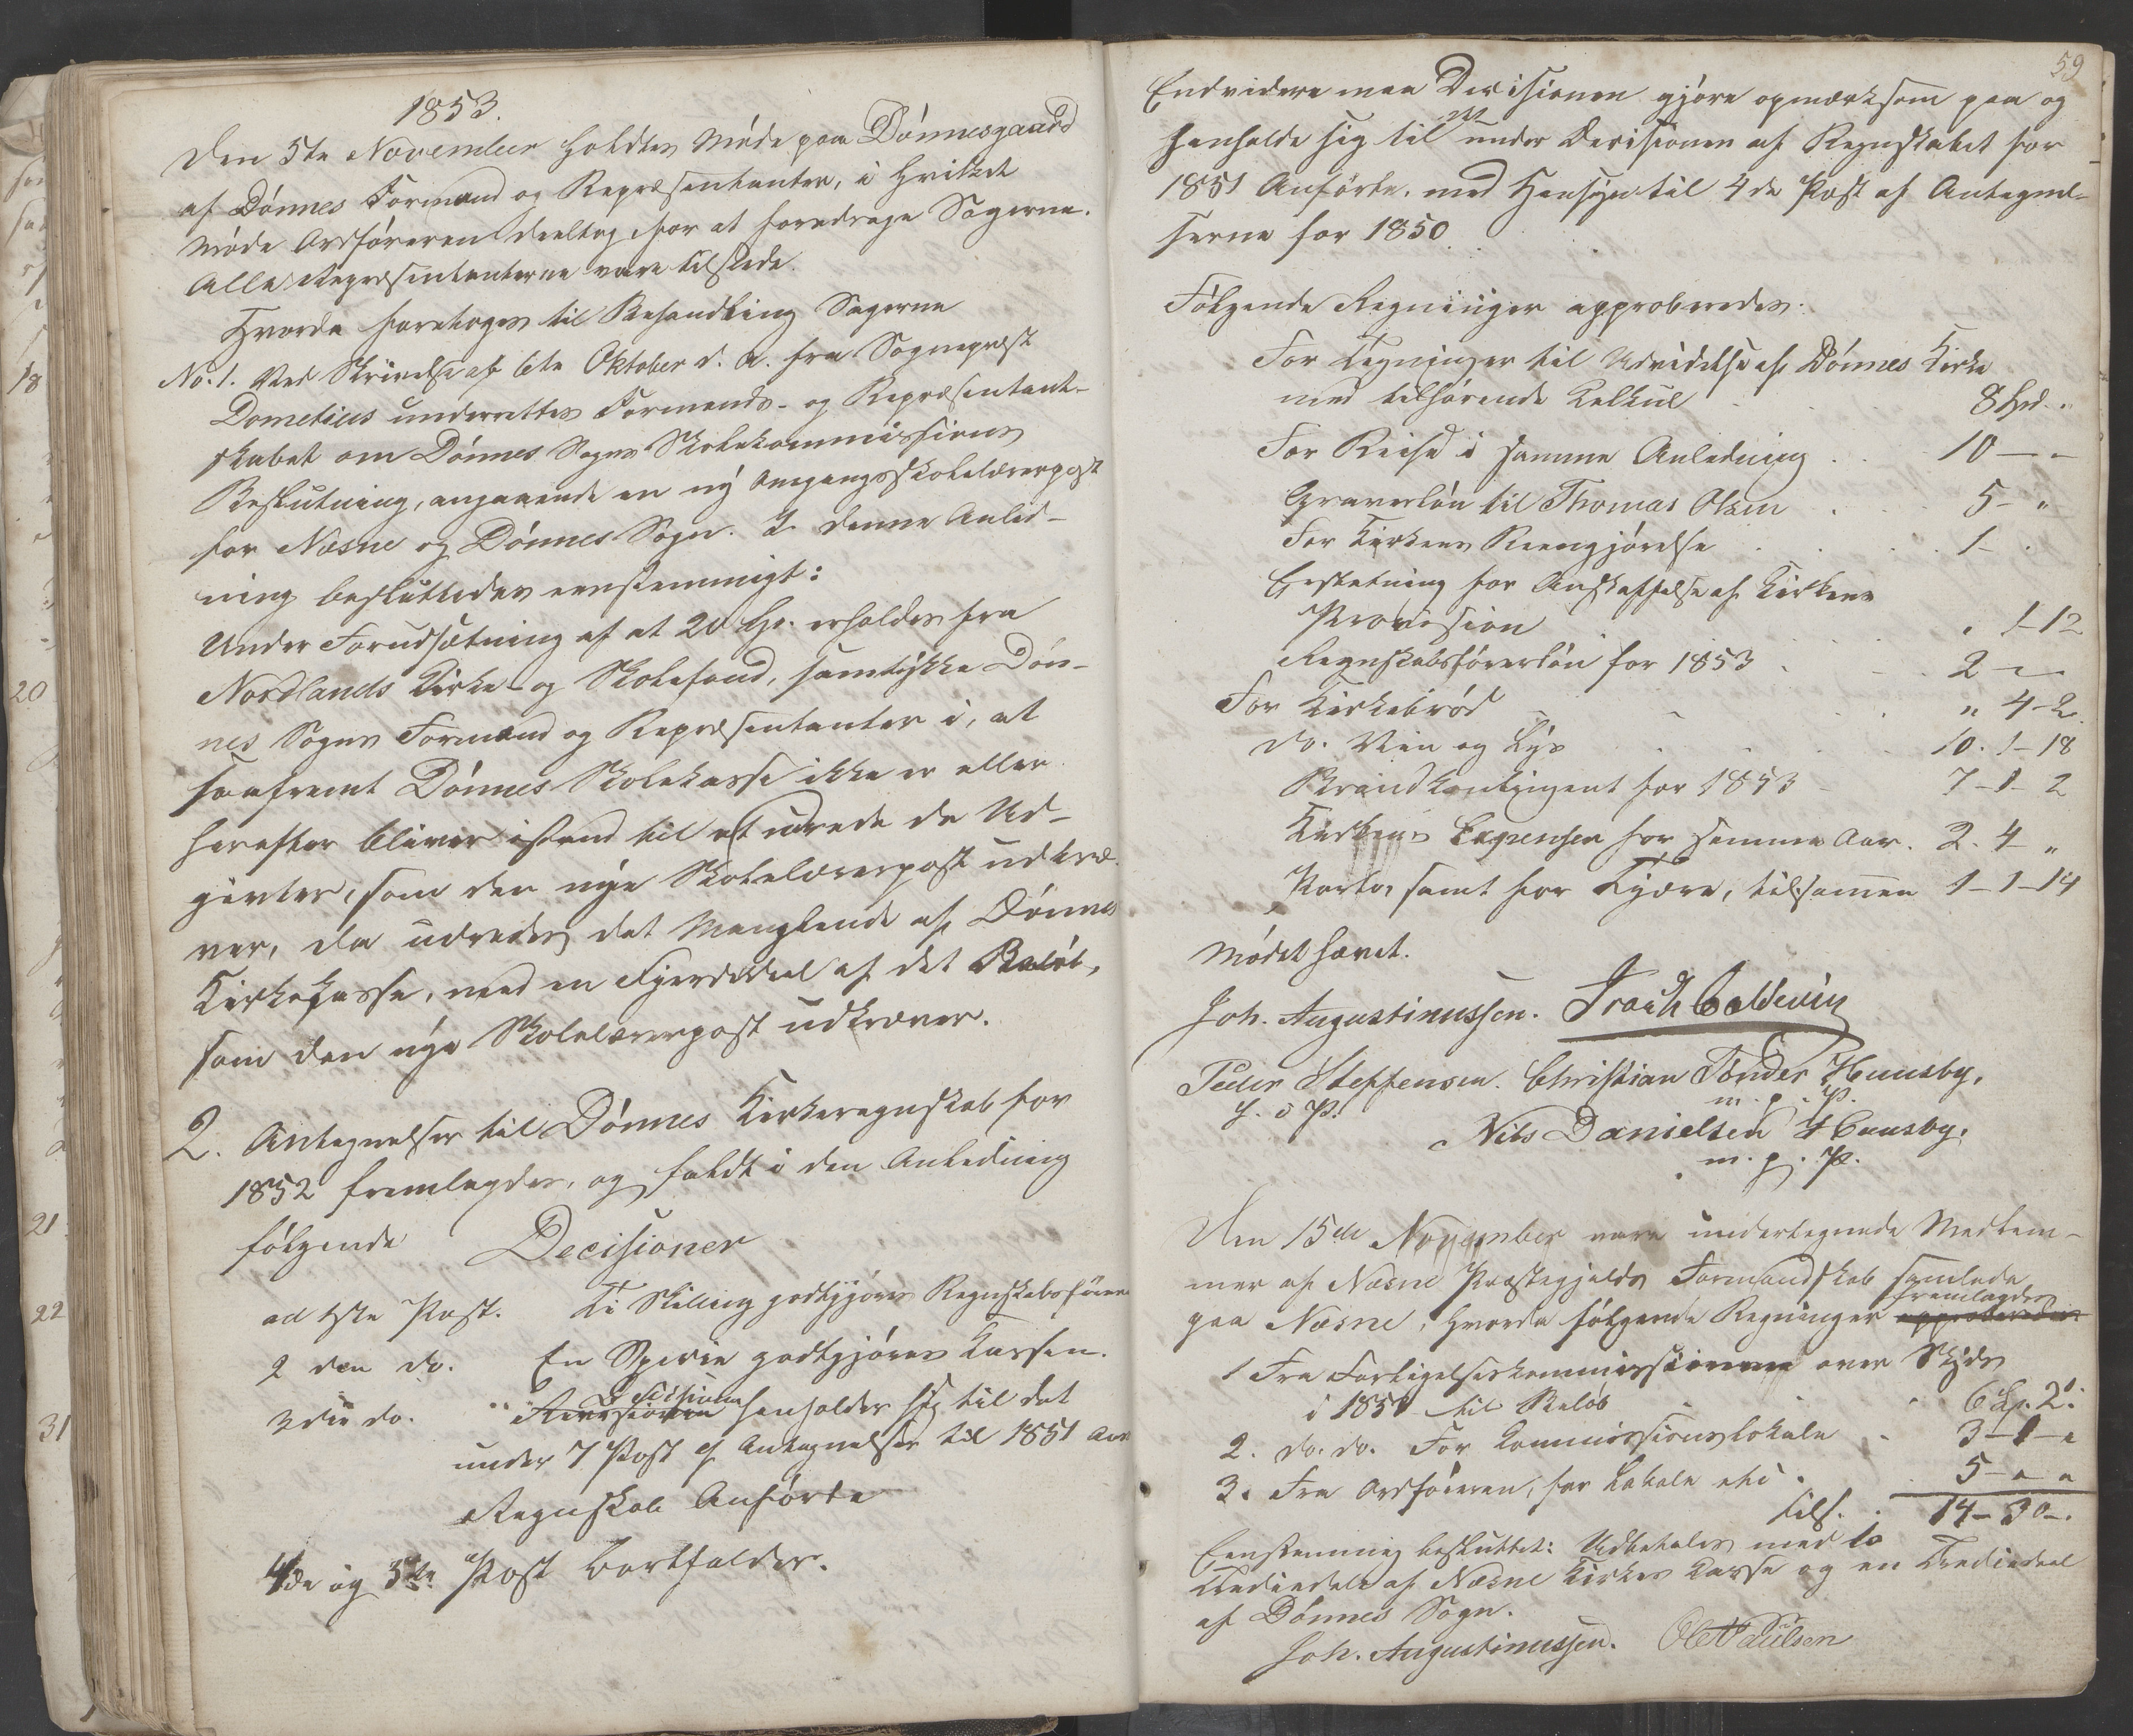 1853.
Den 5te November holdtes Møde paa Dönnesgaard
af Dönnes Formænd og Repræsentanter, i hvilket
Møde Ordföreren deeltog for at foredrage Sagerne.
Alle Repræsentanterne vare tilstede.
Hvorda foretoges til Behandling Sagerne
No. 1. Ved Skrivelse af 6te Oktober d. A. fra Sognepræst
Dometius underrettes Formands- og Repræsentant-
skabet om Dönnes Sogns Skolekommissions
Beslutning, angaaende en ny Omgangsskolelærerpost
for Næsne og Dönnes Sogn. I denne Anled-
ning besluttedes eenstemmigt:
Under Forudsætning af at 20 Sp. erholdes fra
Nordlands Kirke- og Skolefond, samtykke Dön-
nes Sogns Formænd og Repræsentanter i, at
saafremt Dönnes Skolekasse ikke er eller
herefter bliver istand til at udrede de Ud-
givter, som den nye Skolelærerpost udkræ-
ver, da udredes det Manglende af Dönnes
Kirkekasse, med en Fjerdedeel af det Beløb,
som den nye Skolelærerpost udkræver.
2. Antegnelser til Dönnes Kirkeregnskab for
1852 fremlagdes, og faldt i den Anledning
følgende Decisioner
ad 1ste Post. Ti Skilling godtgjøres Regnskabsføreren
2den do. En Specie godtgjøres Kassen.
3die do. " Revisionen Decisionen henholder sig til det
under 7 Post af Antegnelser til 1851 Aars
Regnskab Anførte
4de og 5te Post bortfalder.
59
Endvidere maa Decisionen gjøre opmærksom paa og
henholde sig til det under Decisionen af Regnskabet for
1851 Anførte, med Hensyn til 4de Post af Antegnel-
serne for 1850.
Følgende Regninger approberedes:
For Tegninger til Udvidelse af Dönnes Kirke
med tilhørende Kalkul 8 Spd. "
For Reise i samme Anledning . 10 — -
Graverløn til Thomas Olsen . . 5 - "
For Kirkens Reengjørelse . . . 1 - .
Erstatning for Anskaffelse af Kirkens
Provision " 1-12
Regnskabsførerløn for 1853 . . 2 - -
For Kirkebrød " 4-2
do. Viin og Lys . . . 10. 1-18
Brandkontingent for 1853 - 7-1-2
Kirkens Expenser for samme Aar. 2. 4 "
Porto, samt for Tjære, tilsamen 1-1-14
Mødet hævet.
Joh. Augustinussen. Isach Coldevin
Peder Steffensen. Christian Tønder Huusby,
m. p. P.
Nils Danielsen Huusby,
m. p. P.
Den 15de November vare undertegnede Medlem-
mer af Næsne Præstegjelds Formandskab samlede
paa Næsne, hvorda følgende Regninger approberedes fremlagdes
1 Fra Forligelseskommissionen over Skyds
i 1851 til Beløb . 6 Sp. 2.
2. do. do. For Kommissionslokale . 3-1-"
3. Fra Ordføreren, for Lokale etc. . 5 - " "
Tils. . 14-30-.
Eenstemmig besluttet: Udbetales med to
Trediedele af Næsne Kirkes Kasse og en Trediedeel
af Dönnes Sogn.
Joh. Augustinussen. Ole Paulsen
18
20
21
22
31